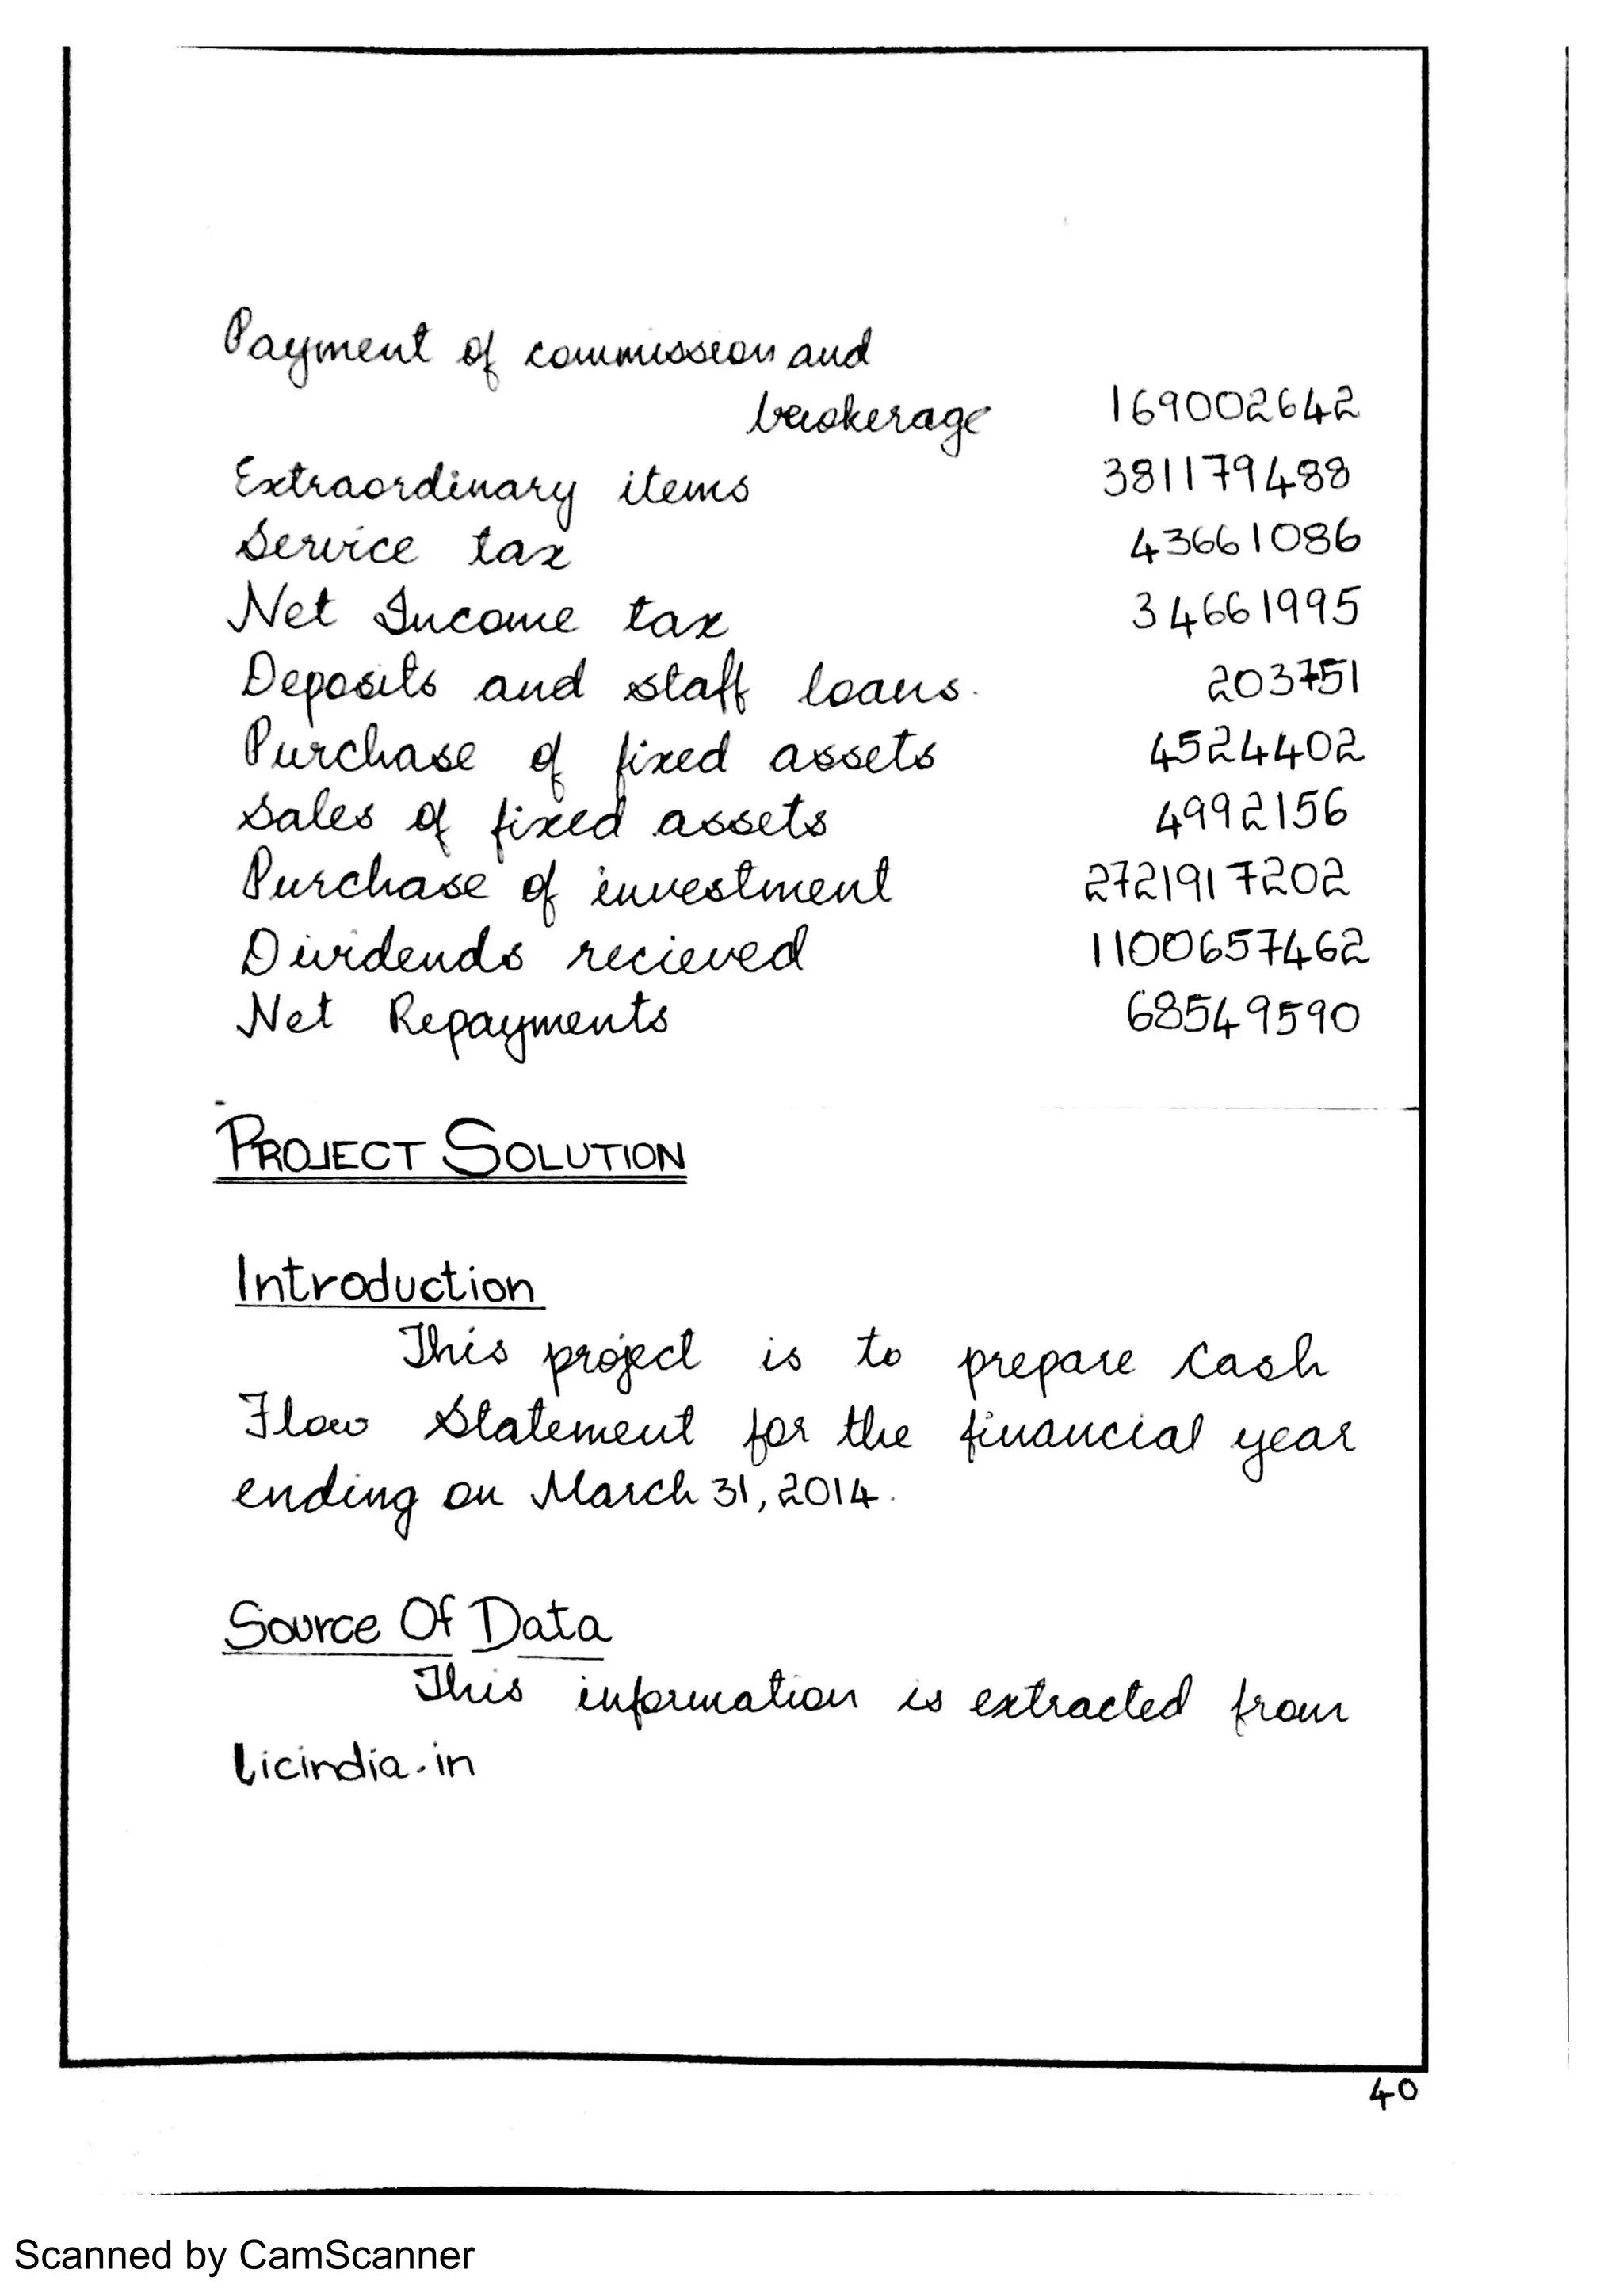 Payment of commission and
brokerage 169002642
Extraordinary items 381179488
Service tax 43661086
Net Income tax 34661995
Deposits and staff loans. 203751
Purchase of fixed assets 4524402
Sales of fixed assets 4992156
Purchase of investment 2721917202
Dividends recieved 1100657462
Net Repayments 68549590
PROJECT SOLUTION
Introduction
This project is to prepare Cash
Flow Statement for the financial year
ending on March 31, 2014.
Source Of Data
This information is extracted from
licindia.in
40
Scanned by CamScanner